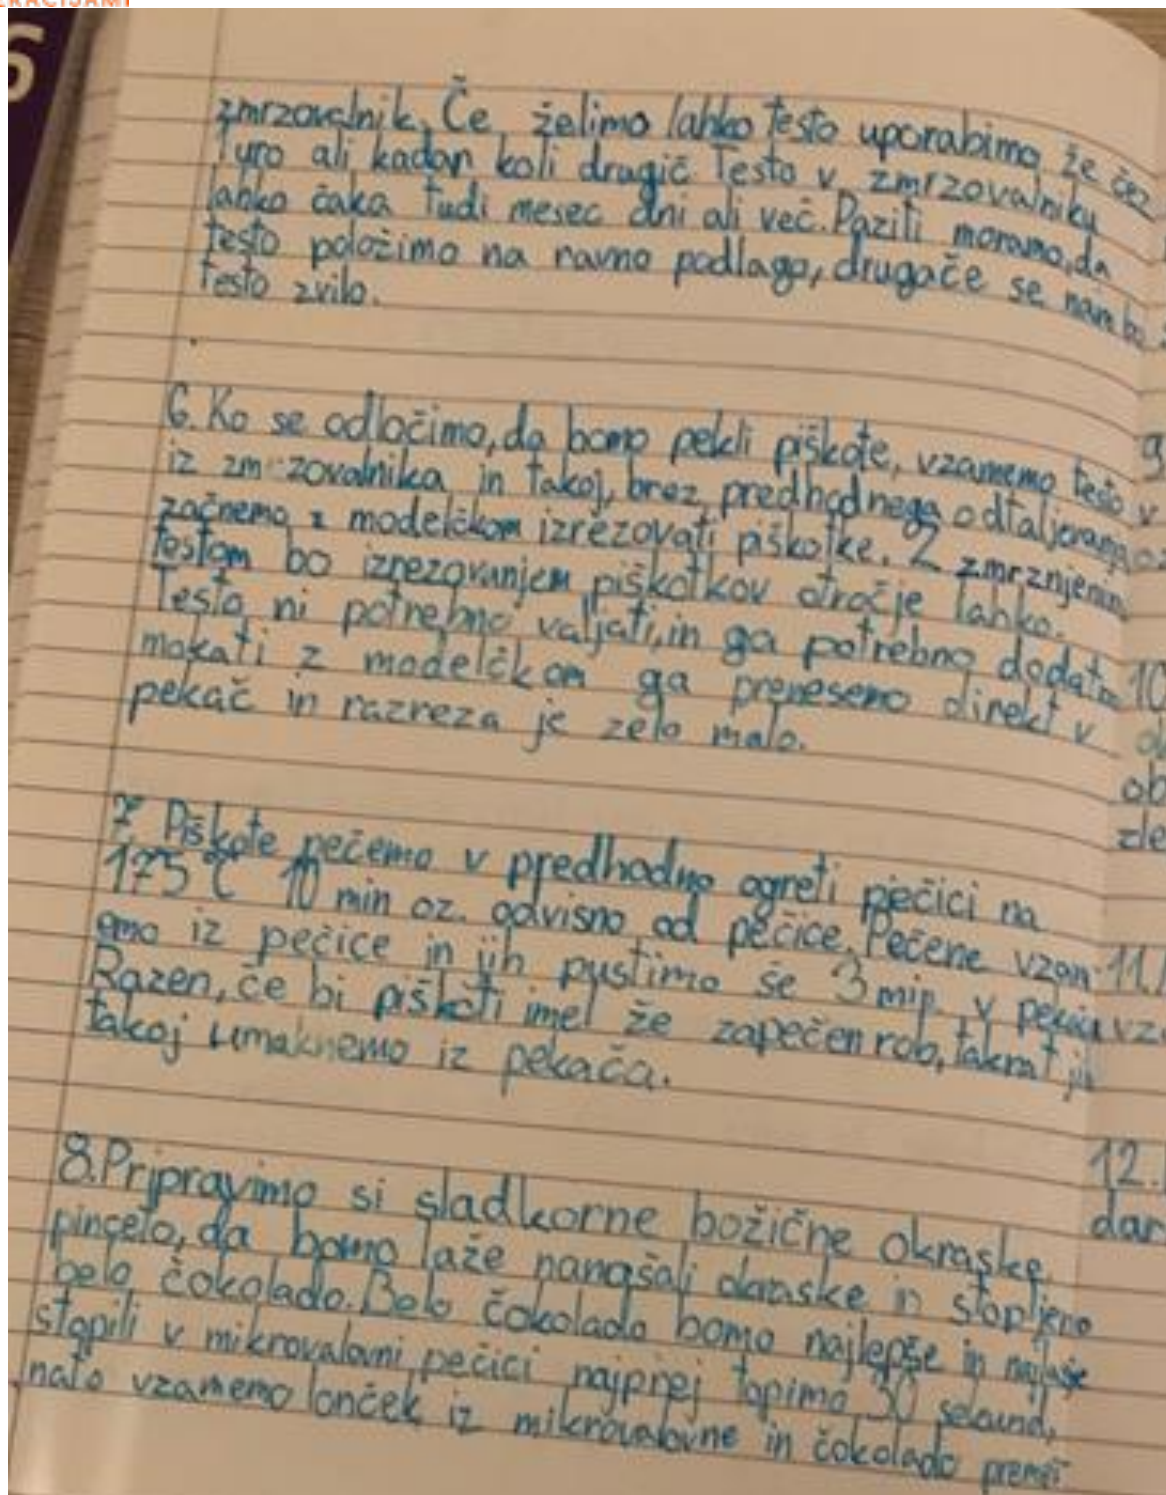 KACIJAMI
6
zmrzovalnik. Če želimo lahko testo uporabimo že čez
1 uro ali kadan koli drugič. Testo v zmrzovalniku
lahko čaka tudi mesec dni ali več. Paziti moramo, da
testo položimo na ravno podlago, drugače se nam bo
testo zvilo.
6. Ko se odločimo, da bomo pekli piškote, vzamemo testo
iz zmrzovalnika in takoj, brez predhodnega odtaljevanja
začnemo z modelčkom izrezovati piškotke. Z zmrznjenim
testom bo izrezovanjem piškotkov otročje lahko.
Testo ni potrebno valjati, in ga potrebno dodatno
mokati z modelčkom ga prenesemo direkt v
pekač in razreza je zelo malo.
7. Piškote pečemo v predhodno ogreti pečici na
175°C 10 min oz. odvisno od pečice. Pečene vzam
emo iz pečice in jih pustimo še 3 min. v pekaču
Razen, če bi piškoti imel že zapečen rob, takrat jih
takoj umaknemo iz pekača.
8. Pripravimo si sladkorne božične okraske,
pinceto, da bomo laže nanašali okraske in stopljeno
belo čokolado. Belo čokolado bomo najlepše in najlaže
stopili v mikrovalovni pečici najprej topimo 30 sekund,
nato vzamemo lonček iz mikrovalovne in čokolado premeš
9
10
ob
zle
11.
vz
12.
dar